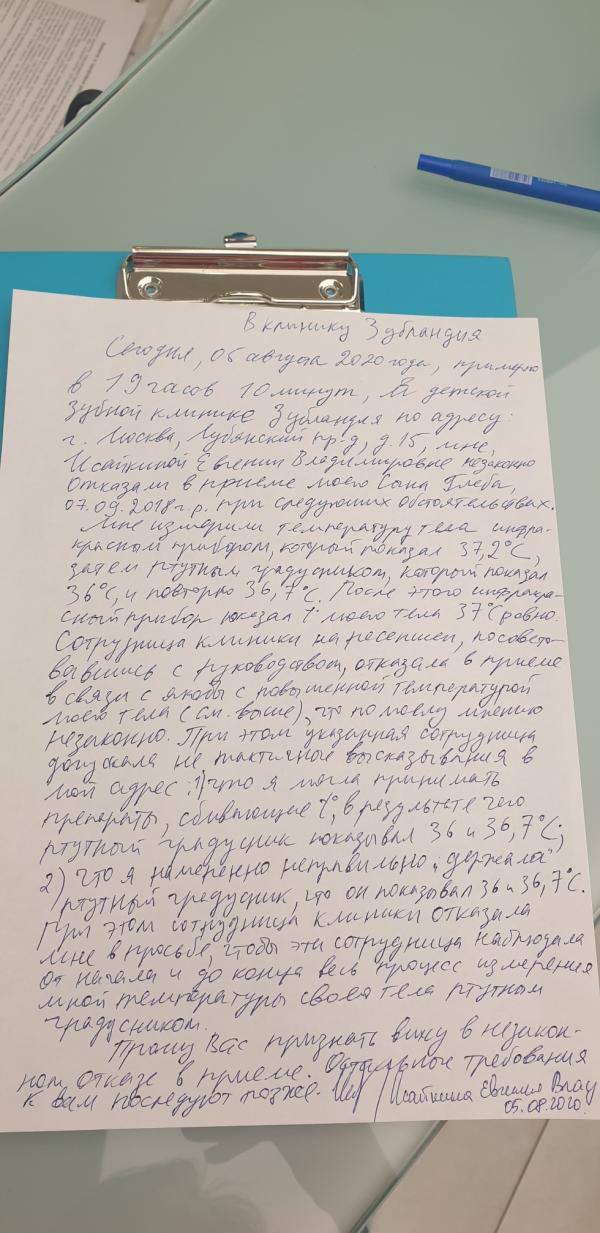 В клинику Зубландия
Сегодня, 05 августа 2020 года, примерно
в 19 часов 10 минут, в детской
зубной клинике Зубландия по адресу:
г. Москва, Лубянский пр-д, д. 15, мне,
Исайкиной Евгении Владимировне незаконно
отказали в приеме моего сына Глеба,
07.09.2018 г.р. при следующих обстоятельствах.
Мне измерили температуру тела инфра-
красным прибором, который показал 37,2°C,
затем ртутным градусником, который показал
36°C, и повторно 36,7°C. После этого инфракра-
сный прибор показал t° моего тела 37°C ровно.
Сотрудница клиники на ресепшен, посовето-
вавшись с руководством, отказала в приеме
в связи с якобы с повышенной температурой
моего тела (см. выше), что по моему мнению
незаконно. При этом указанная сотрудница
допускала не тактичные высказывания в
мой адрес: 1) что я могла принимать
препараты, сбивающие t°, в результате чего
ртутный градусник показывал 36 и 36,7°C;
2) что я намеренно неправильно "держала"
ртутный градусник, что он показывал 36 и 36,7°C.
При этом сотрудница клиники отказала
мне в просьбе, чтобы эти сотрудница наблюдала
от начала и до конца весь процесс измерения
мной температуры своего тела ртутным
градусником.
Прошу Вас признать вину в незакон-
ном отказе в приеме. Остальные требования
к вам последуют позже. Исайкина Евгения Влад
05.08.2020.